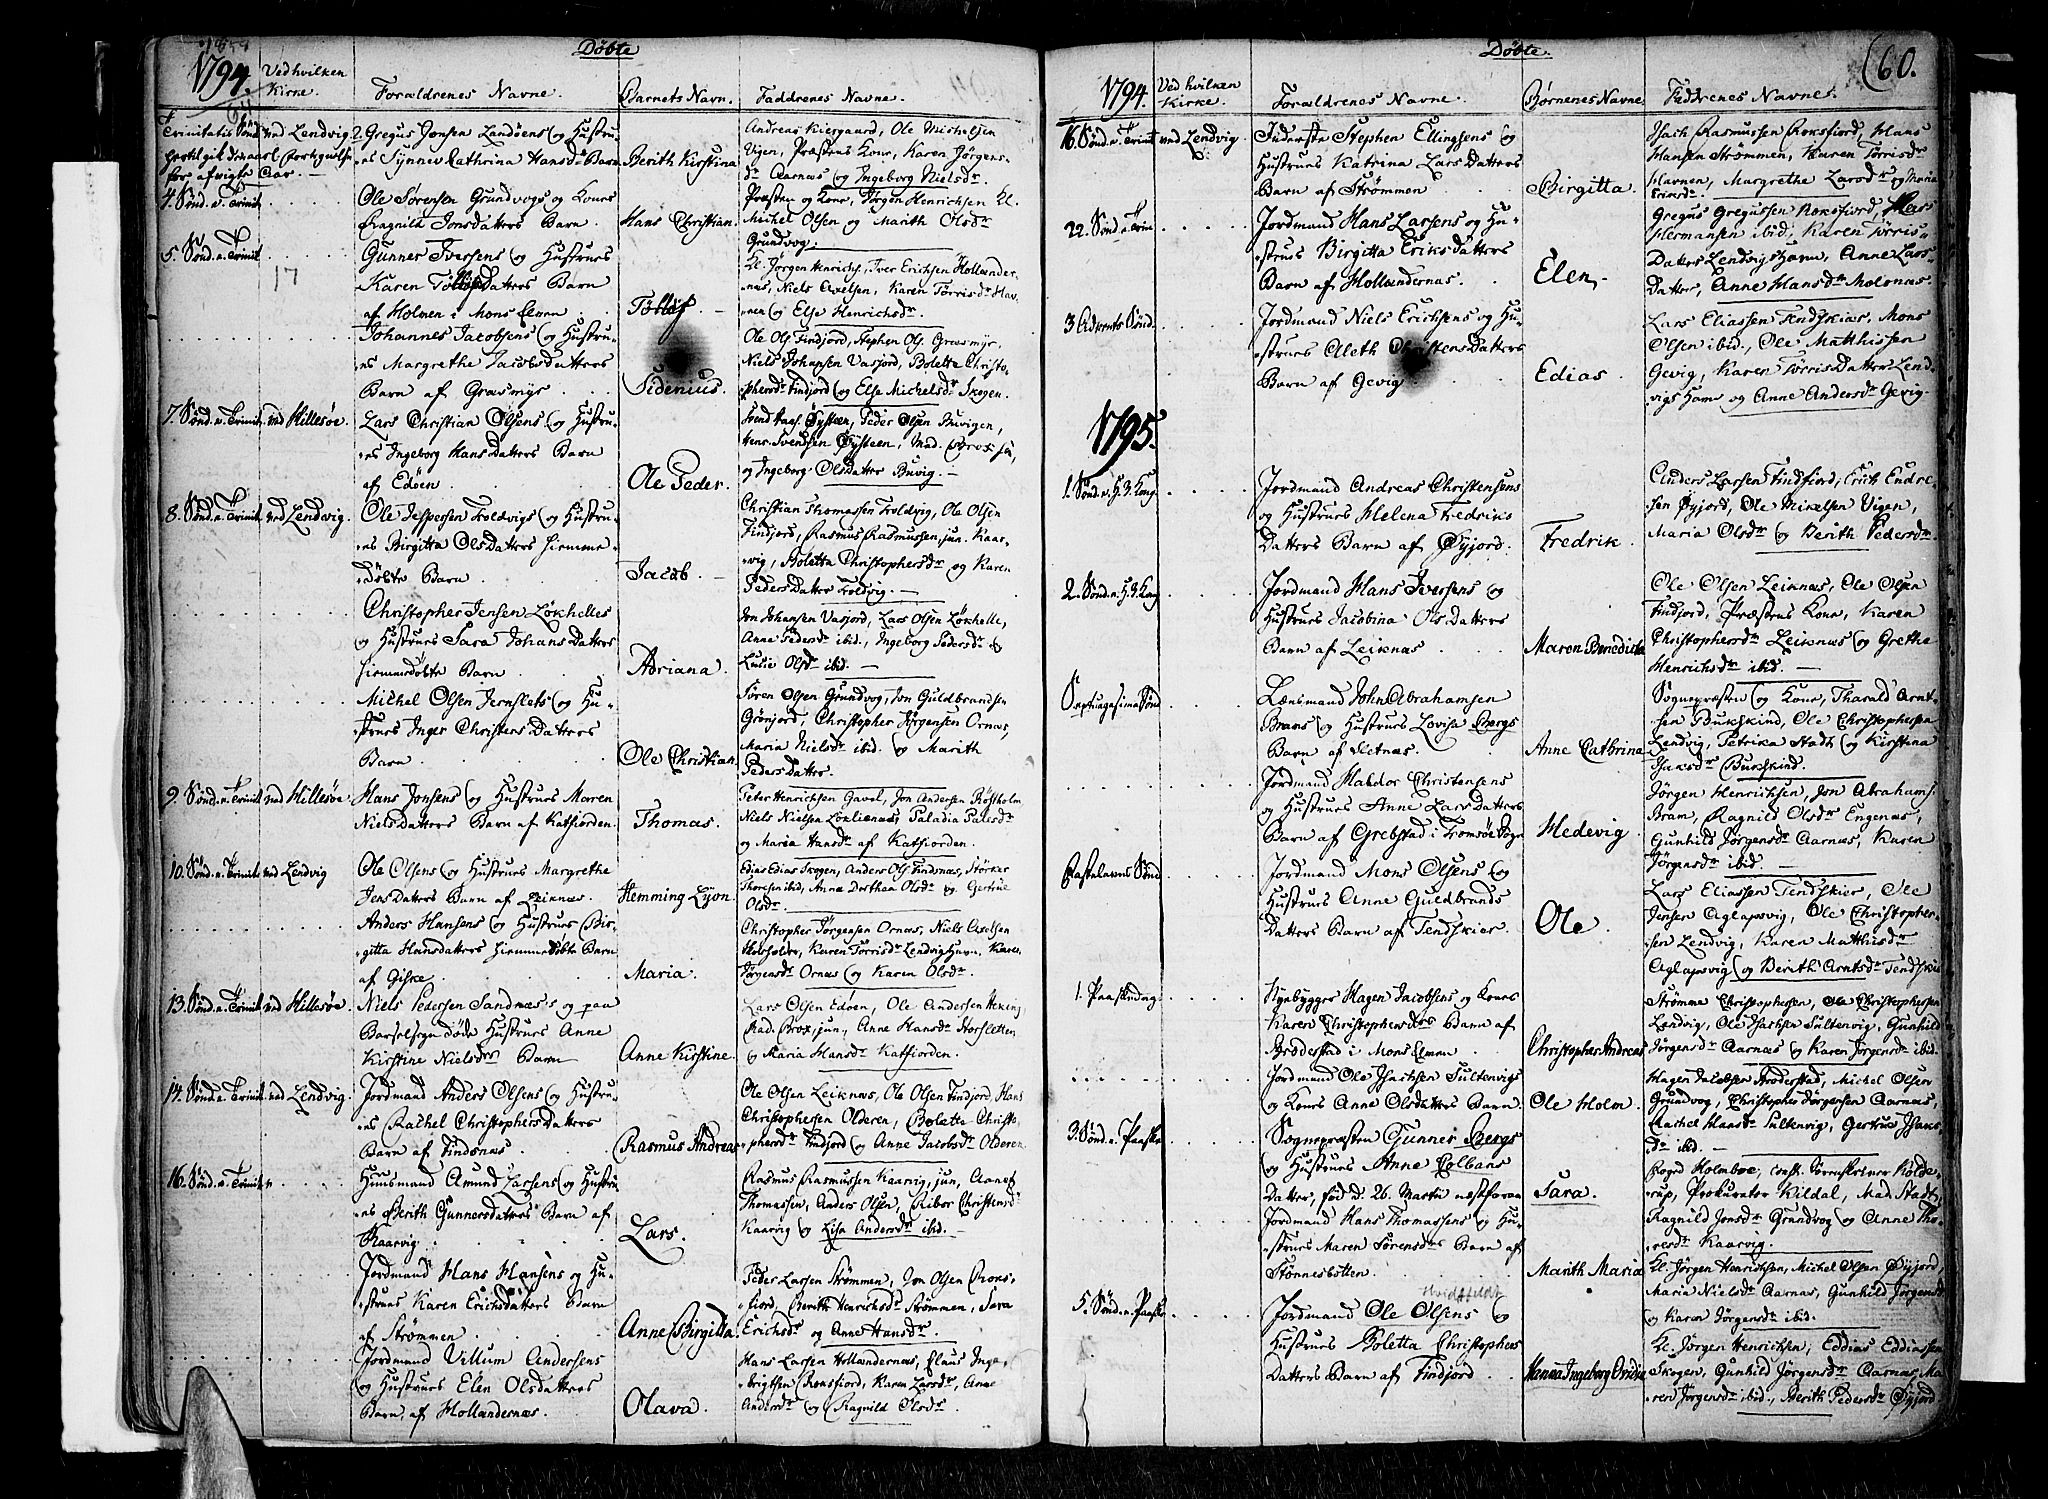 Døbte
1794. Ved hvilken Kirke. Forældrenes Navne. Barnets Navn. Faddrenes Navne.
Trinitatis Sønd. ved Lendvig
Gregus Jonsen Landøens og Hustru-
es Synnev Cathrina Hansdrs Barn
Berith Kirstina
Andreas Kiergaard, Ole Michelsen
Vigen, Præstens Kone, Karen Jørgens-
dr Aarnæs og Ingeborg Nielsdr.
4. Sønd. n. Trinit.
Ole Sørensen Grundvogs og Kones
Ragnild Jonsdatters Barn
Hans Christian.
Præsten og Kone, Jørgen Henrichsen Kl.
Michel Olsen og Marith Olsdr
Grundvog.
5. Sønd. n. Trinit
17
Gunner Iversens og Hustrues
Karen Datters Barn
af Holmen i Mons Elven
Kl. Jørgen Henrichs, Iver Erichsen Hollænder-
næs, Niels Axelsen, Karen Tørrisdr Hav-
nen og Else Henrichsdr.
Johannes Jacobsens og Hustru-
es Margrethe Jacobsdatters
Barn af Græsmyr
Sidenius.
Ole Ols. Findjord, Stephen Ols. Græsmyr,
Niels Johansen Vasjord, Boletta Christo-
phersdr Findjord og Else Michelsdr Skogen.
7. Sønd. n. Trinit. ved Hillesøe.
Lars Christian Olsens og Hustru-
es Ingeborg Hans Datters Barn
af Edøen
Ole Peder.
Svend Øysteen, Peder Olsen Buvigen,
Henr. Svendsen Øysteen, Mad.
og Ingeborg Olsdatter Buvig.
8. Sønd. n. Trinit. ved Lendvig.
Ole Jespersen Foldvigs og Hustru-
es Birgitta Ols Datters hiemme-
døbte Barn
Jacob.
Christian Thomassen Foldvig, Ole Olsen
Findjord, Rasmus Rasmussen, jun. Kaar-
vig, Boletta Christophersdr og Karen
Peders Datter Foldvig.
Christopher Jensen Løkhelles
og Hustrues Sara Johans Datters
hiemmedøbte Barn
Adriana.
Jon Johansen Vasjord, Lars Olsen Løkhelle,
Anne Pedersdr ibid, Ingeborg Pedersdr &
Lucie Olsdr ibid.
Michel Olsen Jernslets og Hu-
strues Inger Christens Datters
Barn
Ole Christian.
Søren Olsen Grundvog, Jon Guldbrandsen
Grønjord, Christopher Jørgensen Ornæs,
Maria Nielsdr ibid. og Marith
Peders Datter.
9. Sønd. n. Trinit ved Hillesøe
Hans Jonsens og Hustrues Maren
Niels Datters Barn af Katfiorden.
Thomas.
Peter Henrichsen Gavel, Jon Andersen Røstholm
Niels Nielsen Paladia Palesdr
og Maria Hansdr af Katfiorden.
10. Sønd. n. Trinit ved Lendvig
Ole Olsens og Hustrues Margrethe
Jens Datters Barn af Leiknæs.
Hemming Lyon.
Edias Edias. Skogen, Anders Ols. Findsnæs, Størker
Thoresen ibid, Anne Dorthea Olsdr og Gertrue
Olsdr.
Anders Hansens og Hustrues Bir-
gitta Hansdatters hiemmedøbte Barn
af Giske
Maria.
Christopher Jørgensen Ornæs, Niels Axelsen
Karen Tørrisdr Lendvighavn, Karen
Jørgensdr Ornæs og Karen Olsdr.
13. Sønd. n. Trinit. ved Hillesøe.
Niels Pedersen Sandnæs's og paa
Barselseng døde Hustrues Anne
Kirstine Nielsdrs Barn
Anne Kirstine.
Lars Olsen Edøen, Ole Andersen
Brox, jun., Anne Hansdr Horsletten
og Maria Hansdr Katfiorden.
14. Sønd. n. Trinit. ved Lendvig.
Jordmand Anders Olsens og Hustru-
es Rachel Christophers Datters
Barn af Findsnæs.
Rasmus Andreas
Ole Olsen Leiknæs, Ole Olsen Findjord, Hans
Christophersen Olderen, Bolette Christo-
phersdr Findjord og Anne Jacobsdr Olderen.
16. Sønd. n. Trinit
Huusmand Amund Larsens og Hustru-
es Berith Gunnersdatters Barn af
Kaarvig.
Lars.
Rasmus Rasmussen Kaarvig, jun,
Thomassen, Anders Olsen, Ribor Christensdr
Kaarvig og Lisa Andersdr ibid.
Jordmand Hans Hansens og Hu-
strues Karen Erichsdatters Barn
af Strømmen
Anne Birgitta.
Peder Larsen Strømmen, Jon Olsen Roks-
fiord, Berith Henrichsdr Strømmen, Sara
Erichsdr og Anne Hansdr.
Jordmand Villum Andersens
og Hustrues Elen Olsdatters
Barn af Hollændernæs.
Olava.
Hans Larsen Hollændernæs, Claus Inge-
brigtsen Roksfiord, Karen Larsdr, Anne
Andersdr og Ragnild Olsdr.
Døbte.
60.
1794. Ved hvilken Kirke. Forældrenes Navne. Børnenes Navne. Faddrenes Navne.
16. Sønd. n. Trinit ved Lendvig.
Inderste Stephen Ellingsens og
Hustrues Katrina Lars Datters
Barn af Strømmen
Birgitta.
Isach Rasmussen Roksfiord, Hans
Hansen Strømmen, Karen Tørrisdr
Havnen, Margrethe Larsdr og Maria
Eriksdr.
22. Sønd. n. Trin
Jordmand Hans Larsens og Hu-
strues Birgitta Eriks Datters
Barn af Hollændernæs.
Elen.
Gregus Gregussen Roksfiord,
Hermansen ibid, Karen Tørris-
Datter Lendvigs Havn, Anne Lars-
Datter, Anne Hansdr Molonæs.
3 Advents Sønd.
Jordmand Niels Erichsens og Hu-
strues Aleth Christens Datters
Barn af Gevig
Edias.
Lars Eliassen Tendskiær, Mons
Olsen ibid., Ole Matthissen
Gevig, Karen Tørris Datter Lend-
vigs Havn og Anne Andersdr Gevig.
1795.
1. Sønd. n. H. 3. Kong.
Jordmand Andreas Christensens
og Hustrues Helena Fredriks
Datters Barn af Øyjord.
Fredrik.
Anders Larsen Findfiord, Erik Endre-
sen Øyjord, Ole Mikelsen Vigen,
Maria Olsdr og Berith Pedersdr.
2. Sønd. n. H. 3. Kong
Jordmand Hans Iversens og
Hustrues Jacobina Ols Datters
Barn af Leiknæs
Maren Benedicta
Ole Olsen Leiknæs, Ole Olsen
Findjord, Præstens Kone, Karen
Christophersdr Leiknæs og Grethe
Henrichsdr ibid.
Septuagesima Sønd
Lænsmand John Abrahamsen
Brams og Hustrues Lovisa Bergs
Barn af Setnæs.
Anne Cathrina
Sognepræsten og Kone, Tharald Arnt-
sen Bukskind, Ole Christophersen
Lendvig, Petrika Stadt og Kirstina
Isaksdr Bukskind.
Jordmand Haldor Christensens
og Hustrues Anne Lars Datters
Barn af Grebstad i Tromsøe Sogn
Hedevig
Jørgen Henrichsen, Jon Abrahams.
Bram, Ragnild Olsdr Engenæs,
Gunhild Jørgensdr Aarnæs, Karen
Jørgensdr ibid.
Fastelavns Sønd
Jordmand Mons Olsens og
Hustrues Anne Guldbrands
Datters Barn af Tendskier.
Ole.
Lars Eliassen Tendskier, Ole
Jensen Aglapsvig, Ole Christopher-
sen Lendvig, Karen Matthisdr
Aglapsvig og Berith Arntsdr Tendskier
1. Paaskedag
Nyebygger Hagen Jacobsens og Kones
Karen Christophersdrs Barn af
Brodestad i Mons Elven
Christopher Andreas
Strømme Christophersen, Ole Christophersen
Lendvig, Ole Isachsen Sultenvig, Gunhild
Jørgensdr Aarnæs og Karen Jørgensdr ibid.
Jordmand Ole Isachsen Sultenvigs
og Kones Anne Olsdatters Barn.
Ole Holm.
Hagen Jacobsen Brodestad, Michel Olsen
Grundvog, Christopher Jørgensen Aarnæs,
Rachel Hansdr Sultenvig, Gertrue Isaks-
dr ibid.
3. Sønd. n. Paaske
Sognepræsten Gunner Bergs
og Hustrues Anne Colbans
Datter, fød d. 26. Martii næstforan
Sara.
Foged Holmboe, const. Sorenskriver Rolde-
rup, Prokurator Kildal, Mad. Stadt,
Ragnild Jonsdr Grundvog og Anne Tho-
resdr Kaarvig.
Jordmand Hans Thomassens og Hu-
strues Maren Sørensdrs Barn af
Stønnesbotten.
Marith Maria
Kl. Jørgen Henrichsen, Michel Olsen Øyjord,
Maria Nielsdr Aarnæs, Gunhild Jørgensdr
og Karen Jørgensdr ibid.
5. Sønd. n. Paaske
Jordmand Ole Olsens og
Hustrues Boletta Christophers
Datters Barn af Findjord
Hanna Ingeborg
Kl. Jørgen Henrichsen, Eddias Eddiassen
Skogen, Gunhild Jørgensdr Aarnæs, Ma-
ren Jørgensdr ibid., Berith Pedersdr Øyjord